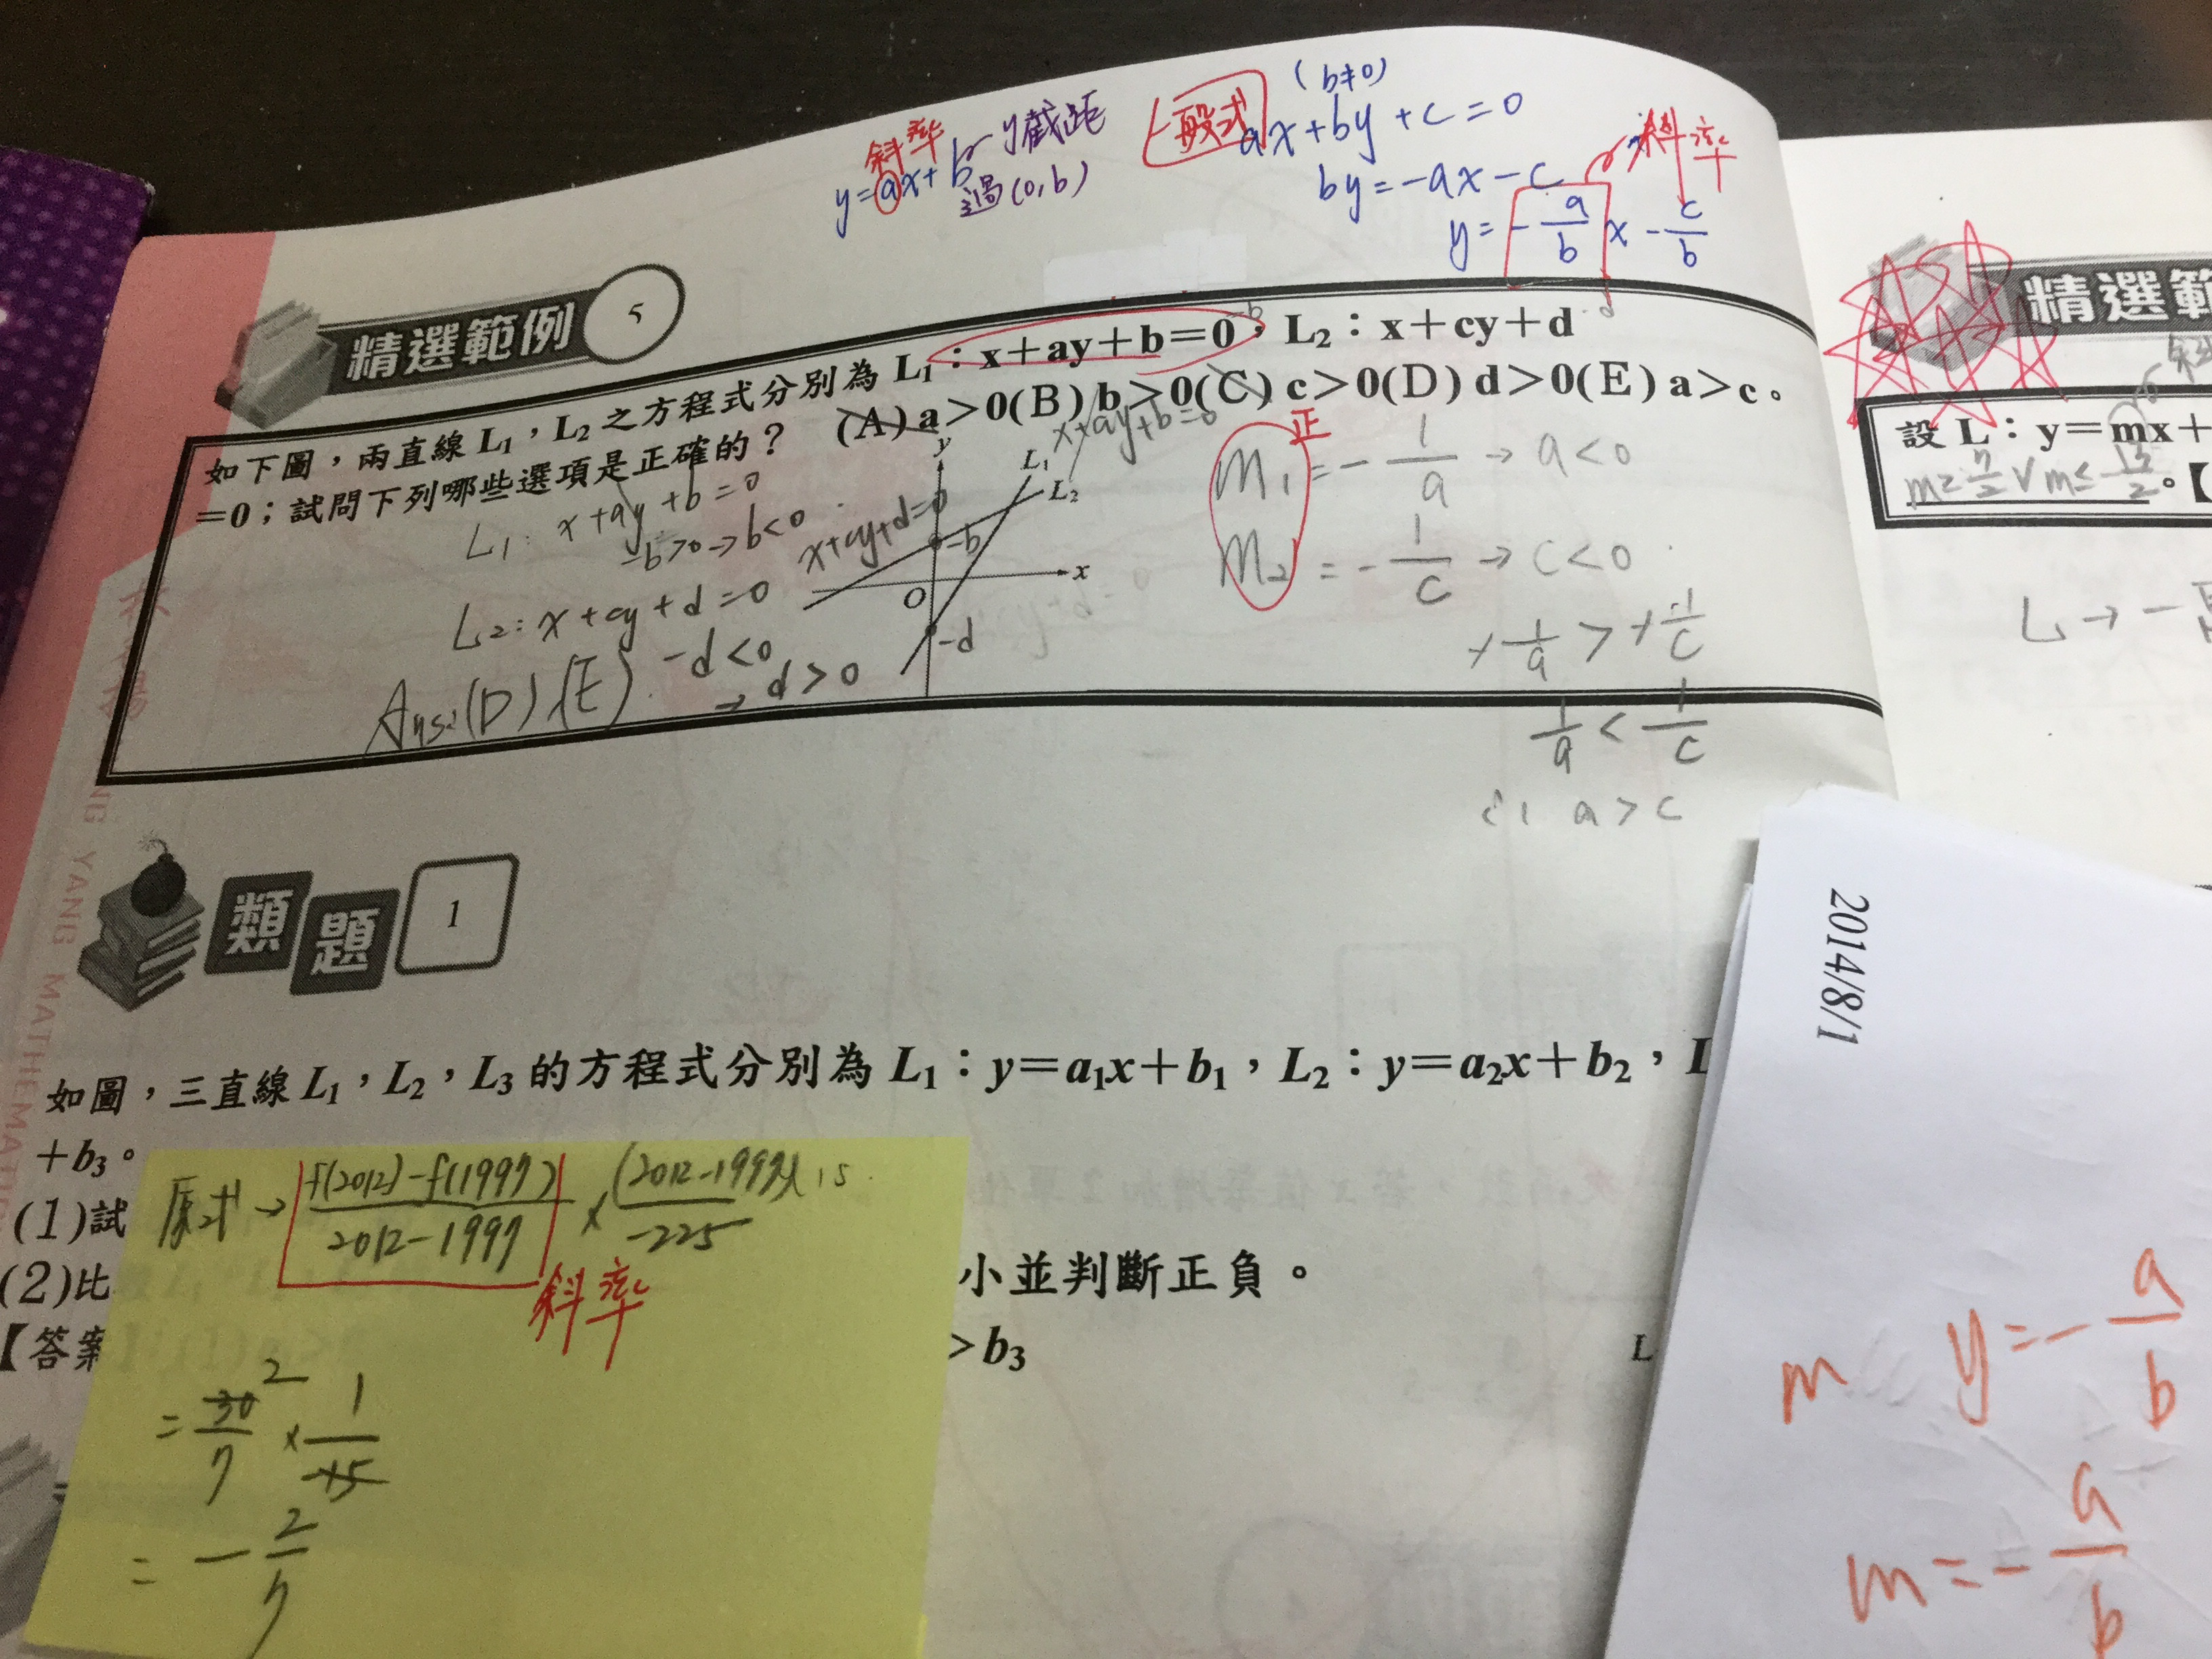 斜率
y=ax+b y截距
過(0,b)
一般式 (b≠0)
ax+by+c=0
by=-ax-c 斜率
y=-a/b x-c/b
精選範例 5
如下圖，兩直線L₁，L₂之方程式分別為L₁：x+ay+b=0，L₂：x+cy+d
=0；試問下列哪些選項是正確的？ (A)a>0(B)b>0(C)c>0(D)d>0(E)a>c。
L₁: x+ay+b=0
-b>0→b<0
L₂: x+cy+d=0
-d<0
→d>0
Ans:(D)(E)
x+ay+b=0
x+cy+d=0
y
L₁
L₂
-b
x
O
-d
正
m₁=-1/a→a<0
m₂=-1/c→c<0
-1/a>-1/c
1/a<1/c
∴ a>c
類題 1
如圖，三直線L₁，L₂，L₃的方程式分別為L₁：y=a₁x+b₁，L₂：y=a₂x+b₂，
+b₃。
(1)試
(2)比 小並判斷正負。
【答案 >b₃
L
原式→ f(2012)-f(1997)/2012-1997 × (2012-1997)/-225 15
斜率
=30/7 2 ×1/-15
=-2/7
精選範
設L：y=mx+
m≥7/2 ∨ m≤13/2。【
L→-
2014/8/1
m y=-a/b
m=-a/b
YANG MATHEMATI